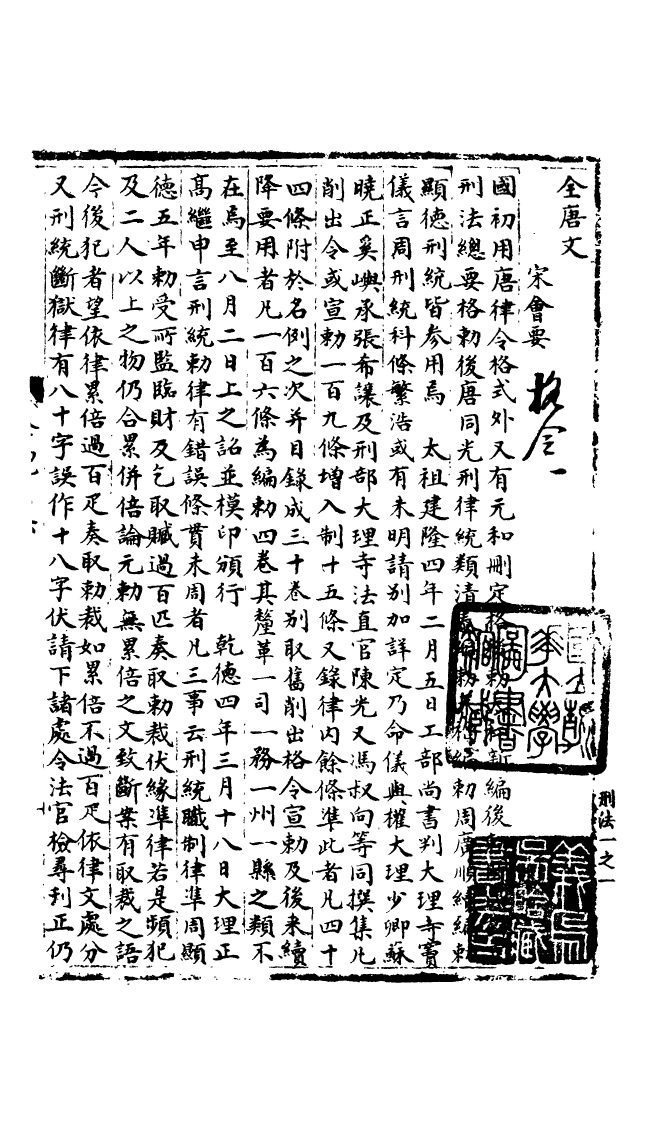 全唐文
宋會要
格令一
國初用唐律令格式外又有元和刪定格後勅太和新編後
刑法總要格勅後唐同光刑律統類清泰編勅天福編勅周廣順續編勅
顯德刑統皆參用焉 太祖建隆四年二月五日工部尚書判大理寺竇
儀言周刑統科條繁浩或有未明請別加詳定乃命儀與權大理少卿蘇
曉正奚嶼承張希讓及刑部大理寺法直官陳光又馮叔向等同撰集凡
削出令或宣勅一百九條增入制十五條又錄律內餘條準此者凡四十
四條附於名例之次并目錄成三十卷別取舊削出格令宣勅及後来續
降要用者凡一百六條為編勅四卷其釐革一司一務一州一縣之類不
在焉至八月二日上之詔並模印頒行 乾德四年三月十八日大理正
髙繼申言刑統勅律有錯誤條貫未周者凡三事云刑統職制律準周顯
德五年勅受所監臨財及乞取贓過百匹奏取勅裁伏緣準律若是頻犯
及二人以上之物仍合累併倍論元勅無累倍之文致斷案有取裁之語
今後犯者望依律累倍過百疋奏取勅裁如累倍不過百疋依律文處分
又刑統斷獄律有八十字誤作十八字伏請下諸處令法官檢尋刋正仍
刑法一之一